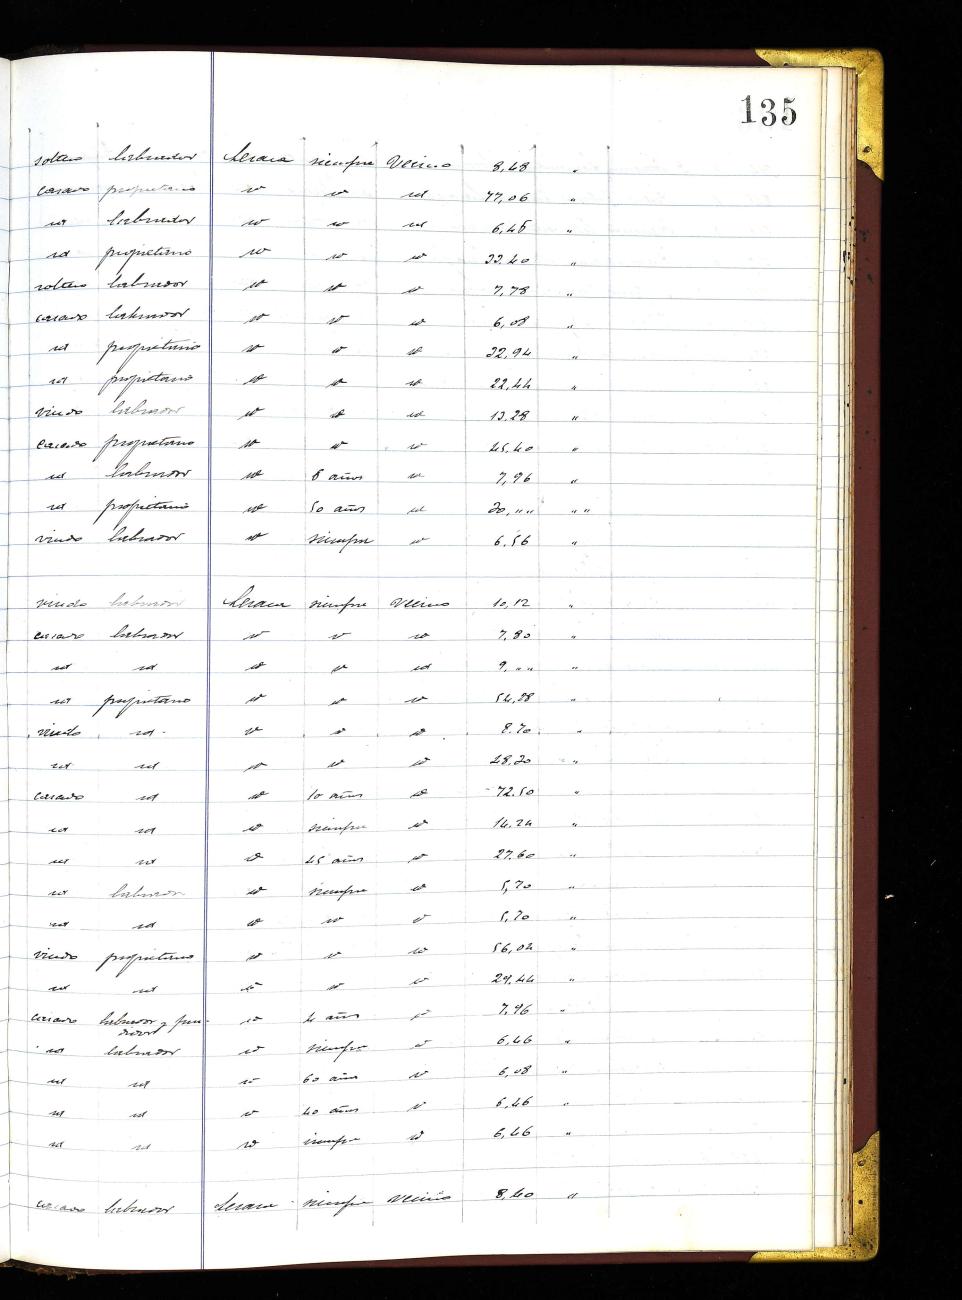 135
soltero labrador Lesaca siempre vecino 8,48 "
casado propietario id id id 77,06 "
id labrador id id id 6,45 "
id propietario id id id 33.40 "
soltero labrador id id id 7,78 "
casado labrador id id id 6,08 "
id propietario id id id 32,94 "
id propietario id id id 22,44 "
viudo labrador id id id 13,28 "
casado propietario id id id 45,40 "
id labrador id 8 años id 7,96 "
id propietario id 50 años id 30, " " " "
viudo labrador id siempre id 6,56 "
viudo labrador Lesaca siempre vecino 10,12 "
casado labrador id id id 7,80 "
id id id id id 9, " " "
id propietario id id id 54,38 "
viudo id id id id 8.70 "
id id id id id 48,30 "
casado id id 10 años id 72.50 "
id id id siempre id 14.24 "
id id id 45 años id 27.60 "
id labrador id siempre id 5,70 "
id id id id id 5,70 "
viudo propietario id id id 56,02 "
id id id id id 29,44 "
casado labrador y id 4 años id 7,96 "
id labrador id siempre id 6,46 "
id id id 60 años id 6,08 "
id id id 40 años id 6,46 "
id id id siempre id 6,46 "
casado labrador Lesaca siempre vecino 8,40 "